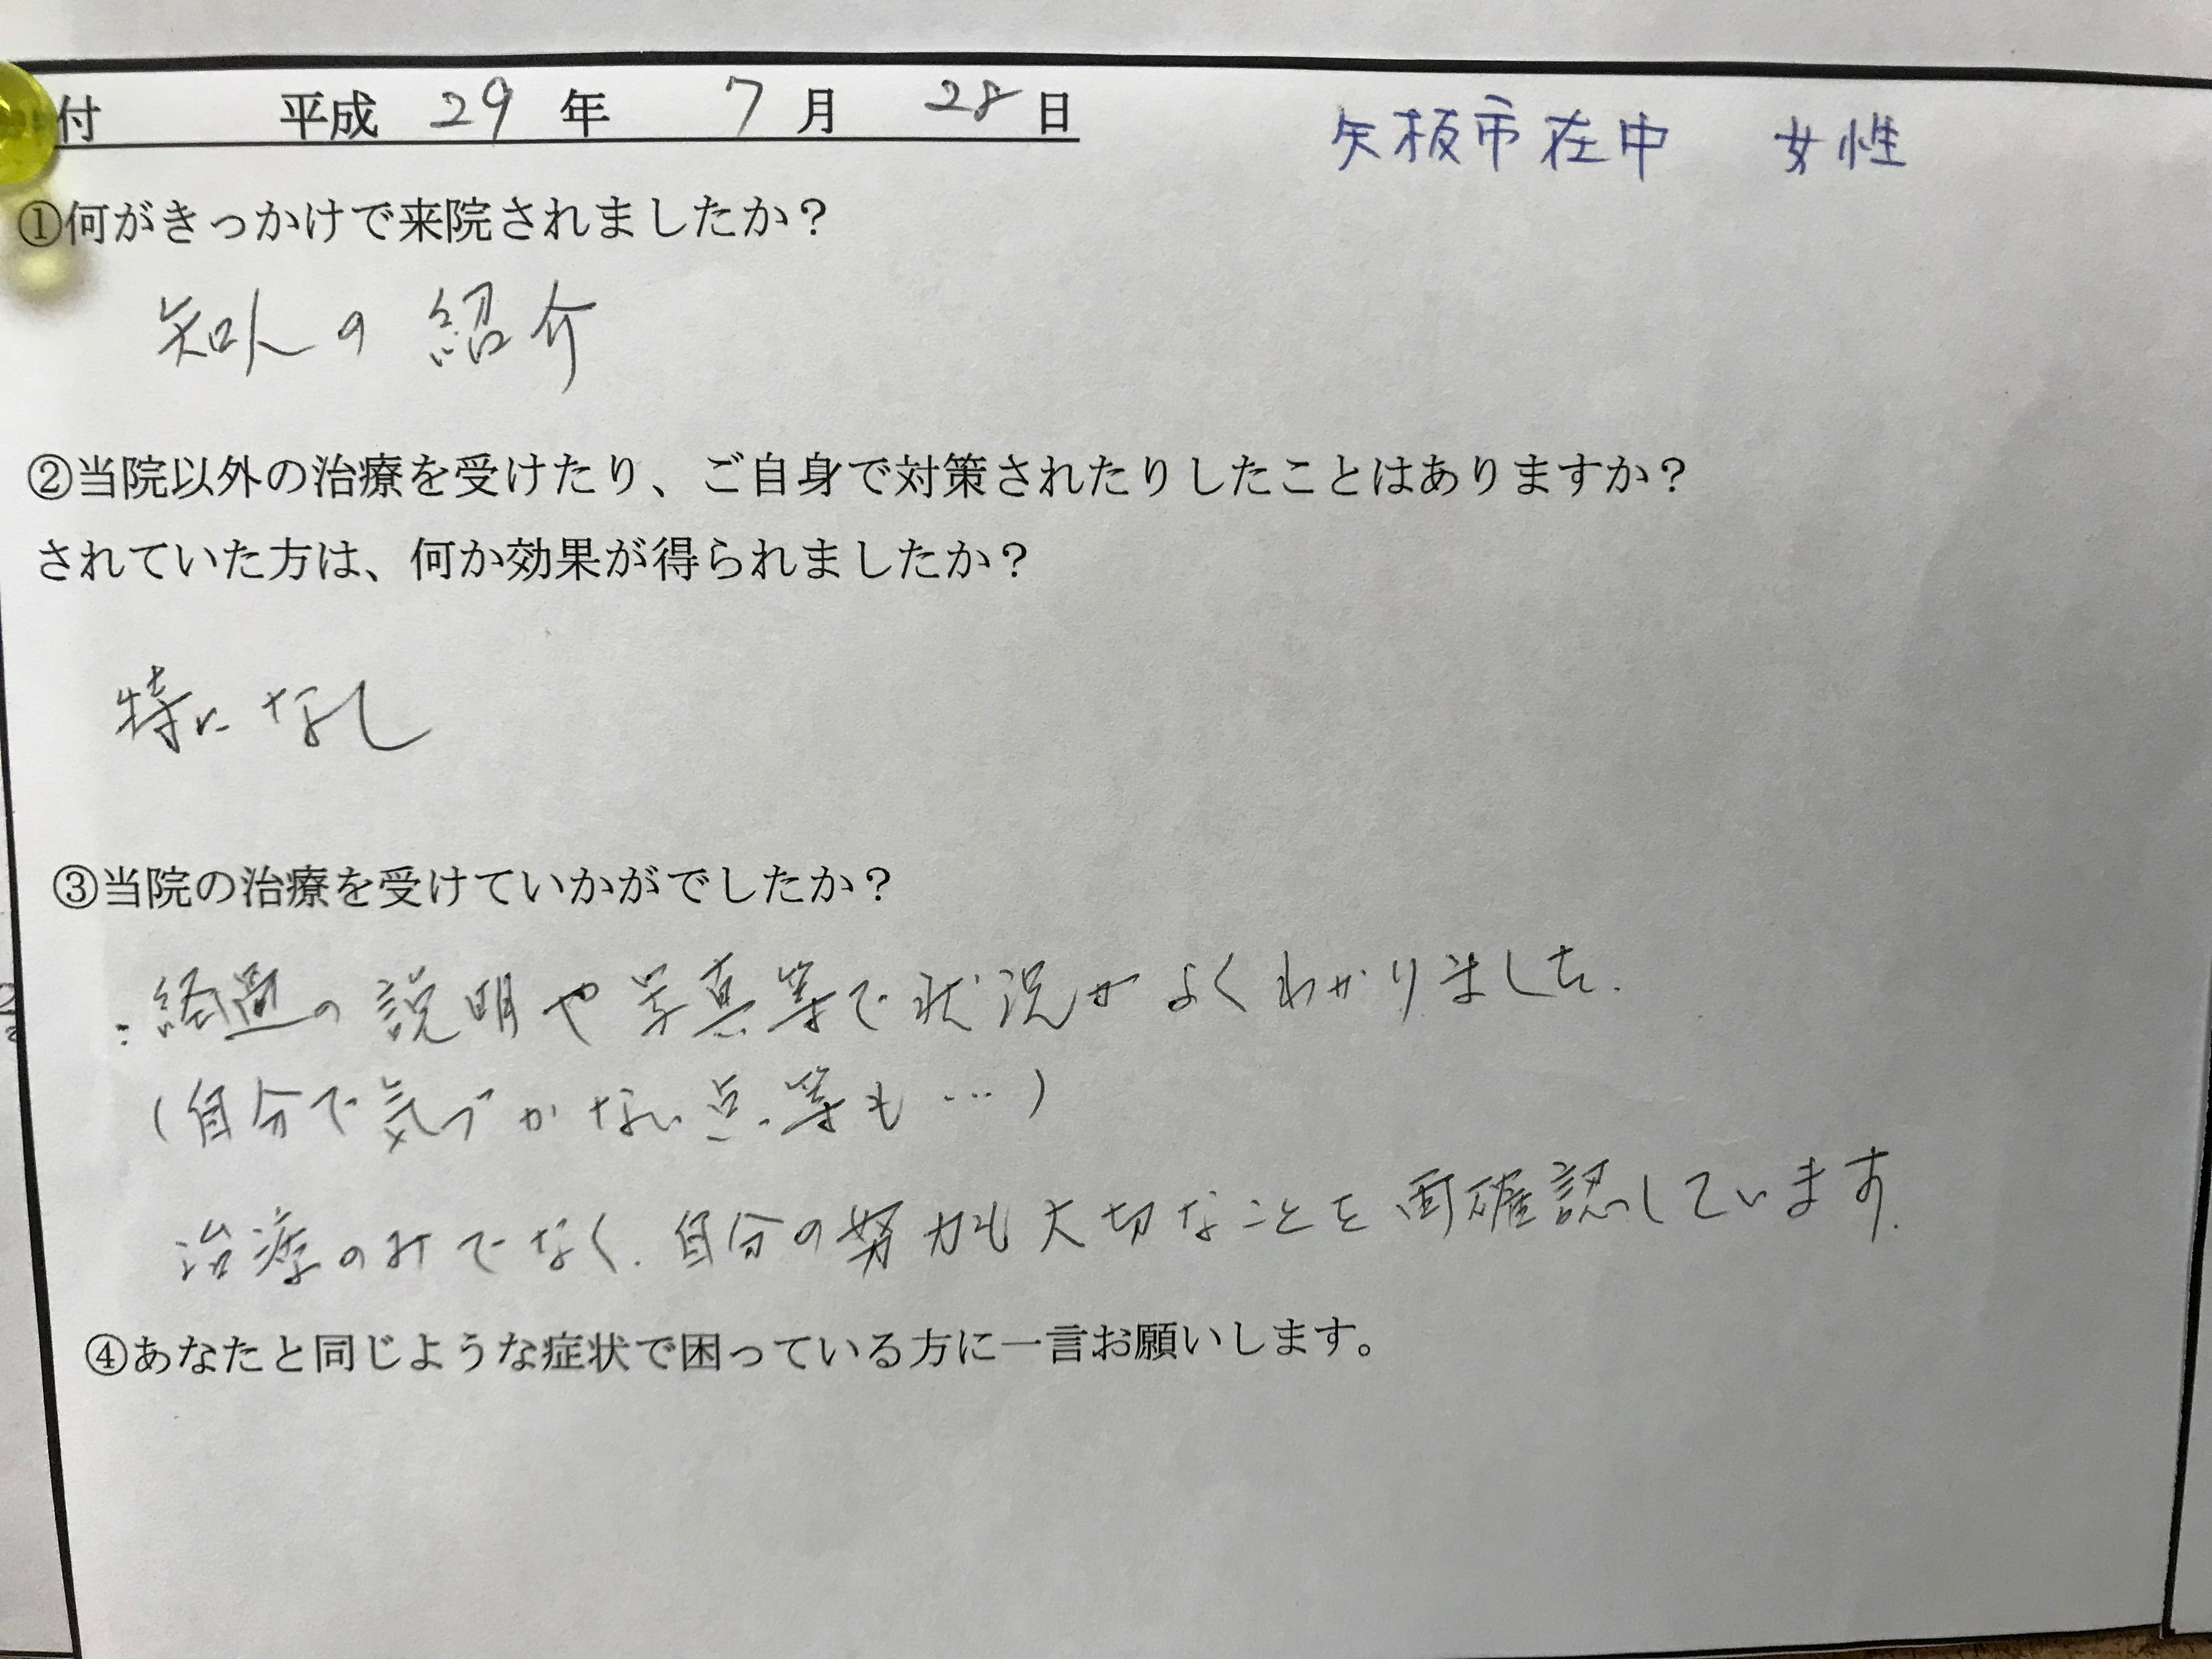 付 平成 29 年 7 月 28 日 矢板市在中 女性
①何がきっかけで来院されましたか？
知人の紹介
②当院以外の治療を受けたり、ご自身で対策されたりしたことはありますか？
されていた方は、何か効果が得られましたか？
特になし
③当院の治療を受けていかがでしたか？
経過の説明や写真等で状況がよくわかりました.
(自分で気づかない点等も…)
治療のみでなく.自分の努力も大切なことを再確認しています.
④あなたと同じような症状で困っている方に一言お願いします。